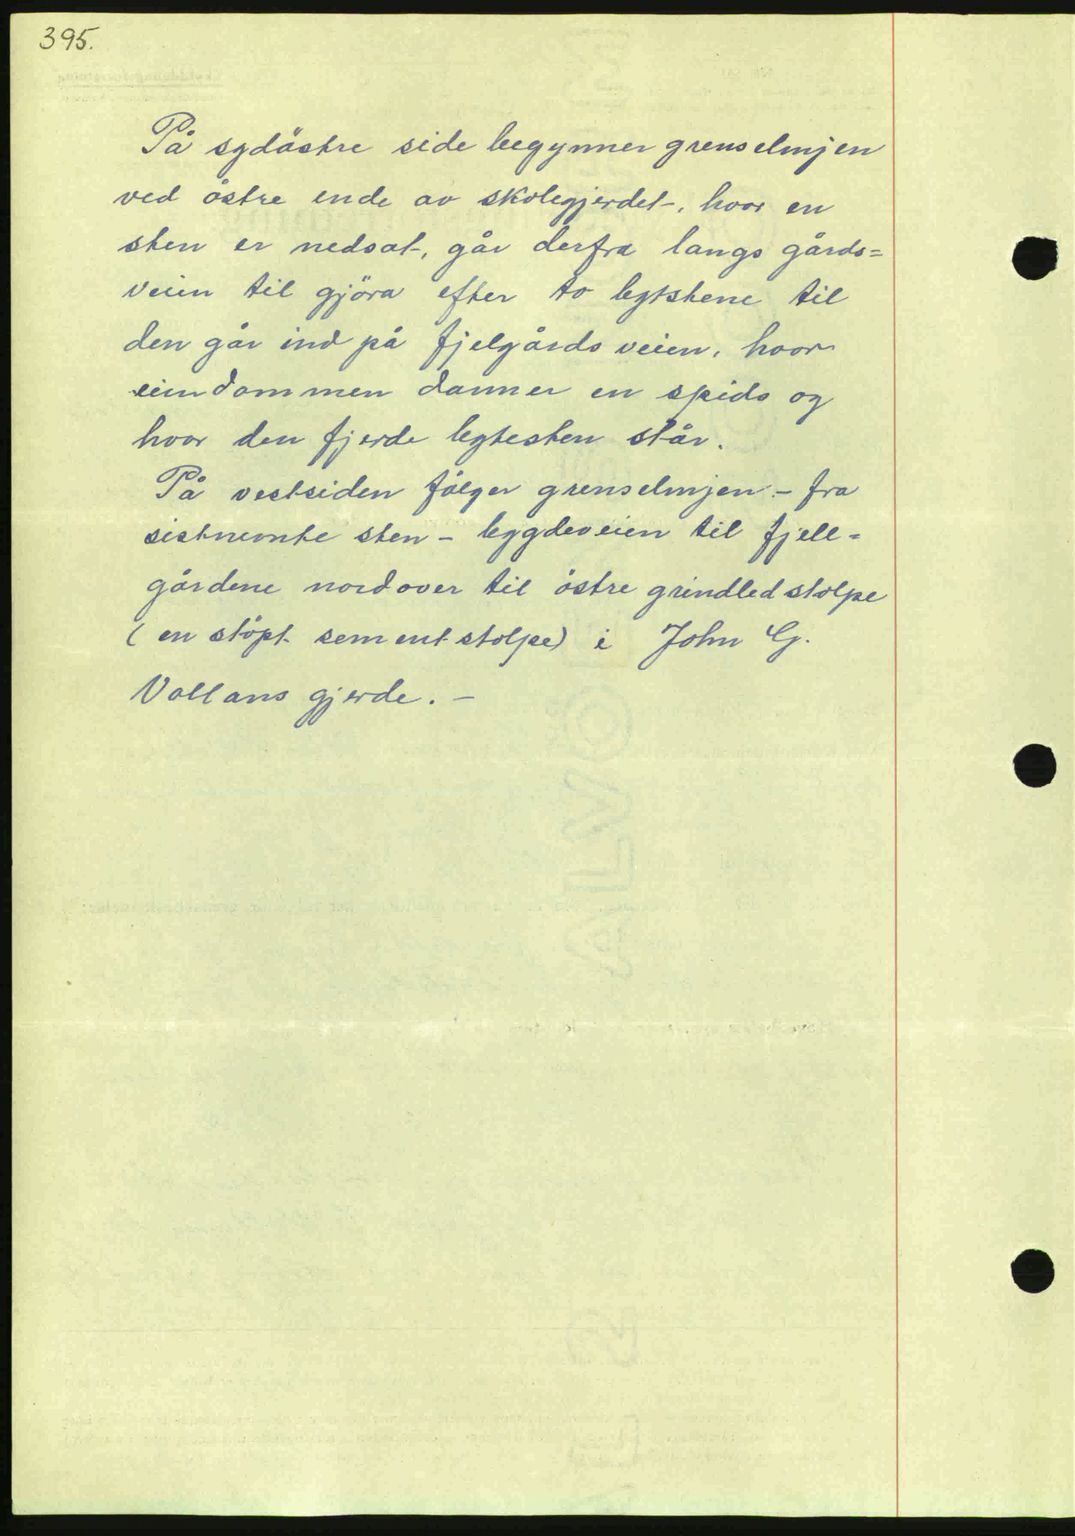 395.
På sydöstre side begynner grenselinjen
ved östre ende av skolegjerdet, hvor en
sten er nedsat, går derfra langs gårds=
veien til gjöra efter to bytstene til
den går ind på fjelgårdsveien, hvor
eiendommen danner en spids og
hvor den fjerde bytesten står.
På vestsiden fölger grenselinjen - fra
sistnemte sten - bygdeveien til fjell=
gårdene nordover til östre grindledstolpe
(en stöpt sementstolpe) i John G.
Vollans gjerde. -